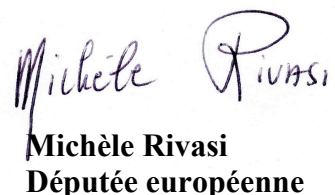 Michèle Rivasi
Michèle Rivasi
Députée européenne